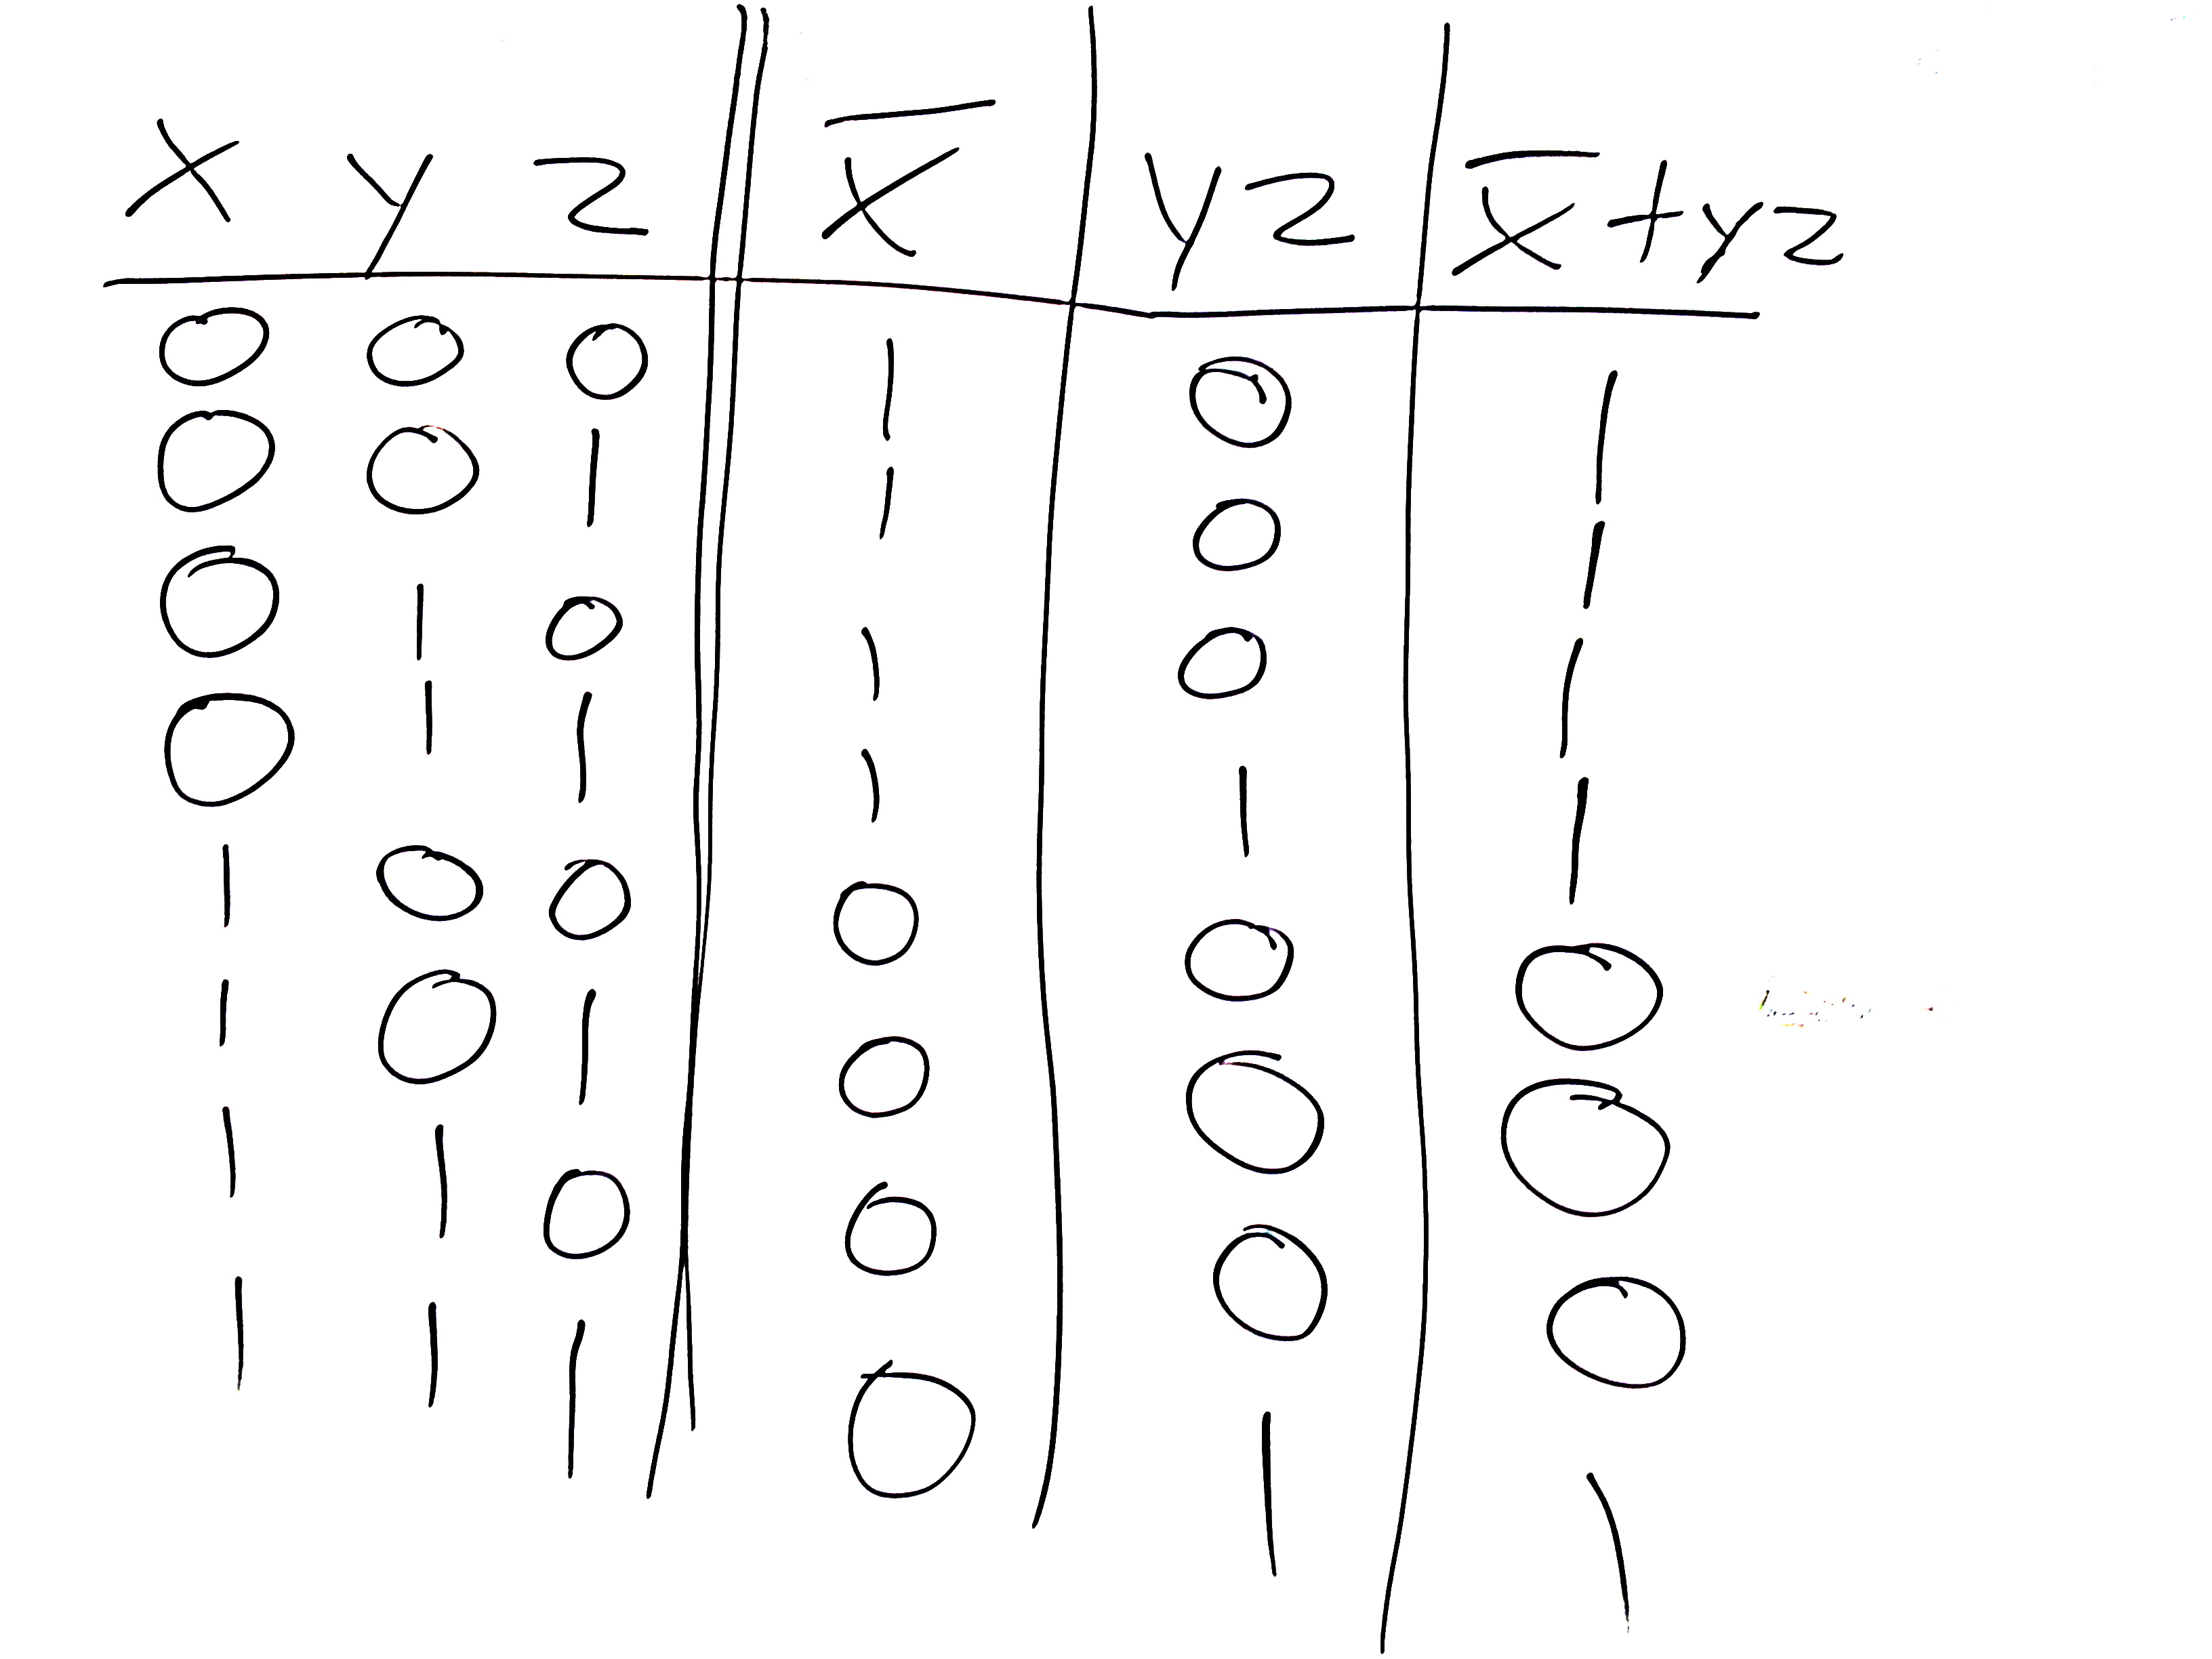 x y z x̅ yz x̅+yz
0 0 0 1 0 1
0 0 1 1 0 1
0 1 0 1 0 1
0 1 1 1 1 1
1 0 0 0 0 0
1 0 1 0 0 0
1 1 0 0 0 0
1 1 1 0 1 1